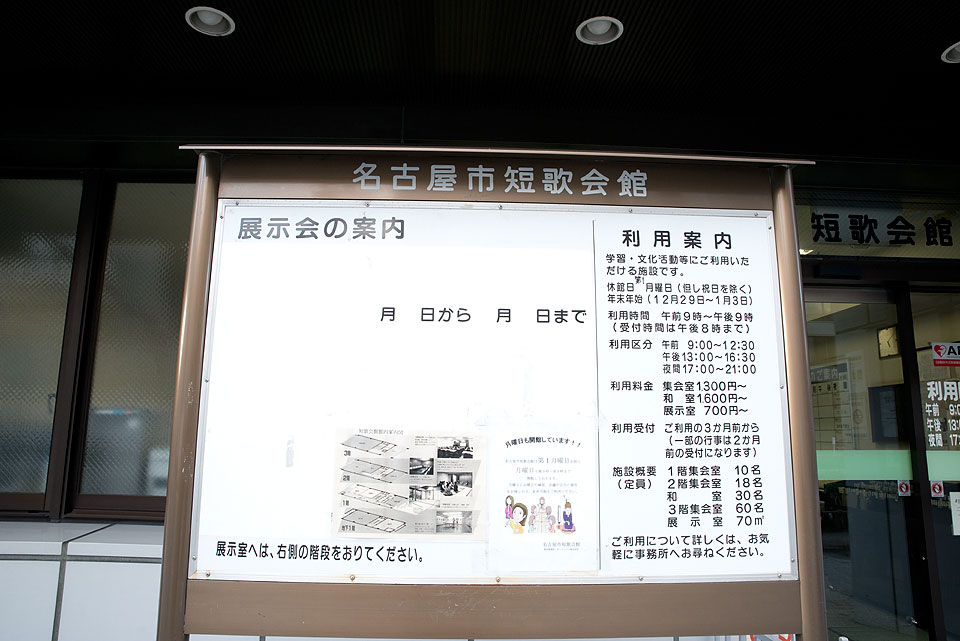 名古屋市短歌会館
展示会の案内
月　日から　月　日まで
短歌会館館内案内図
3階
2階
1階
地下1階
月曜日も開館しています！！
第1月曜日
月曜日
名古屋市短歌会館
展示室へは、右側の階段をおりてください。
利用案内
学習・文化活動等にご利用いた
だける施設です。
休館日 第1月曜日（但し祝日を除く）
年末年始（12月29日〜1月3日）
利用時間　午前9時〜午後9時
（受付時間は午後8時まで）
利用区分　午前　9:00〜12:30
午後13:00〜16:30
夜間17:00〜21:00
利用料金　集会室1,300円〜
和　室1,600円〜
展示室　700円〜
利用受付　ご利用の3か月前から
（一部の行事は2か月
前の受付になります）
施設概要　1階集会室　10名
（定員）　2階集会室　18名
和　　　室　30名
3階集会室　60名
展　示　室　70㎡
ご利用について詳しくは、お気
軽に事務所へお尋ねください。
短歌会館
利用
午前　9:0
午後　13:0
夜間　17: